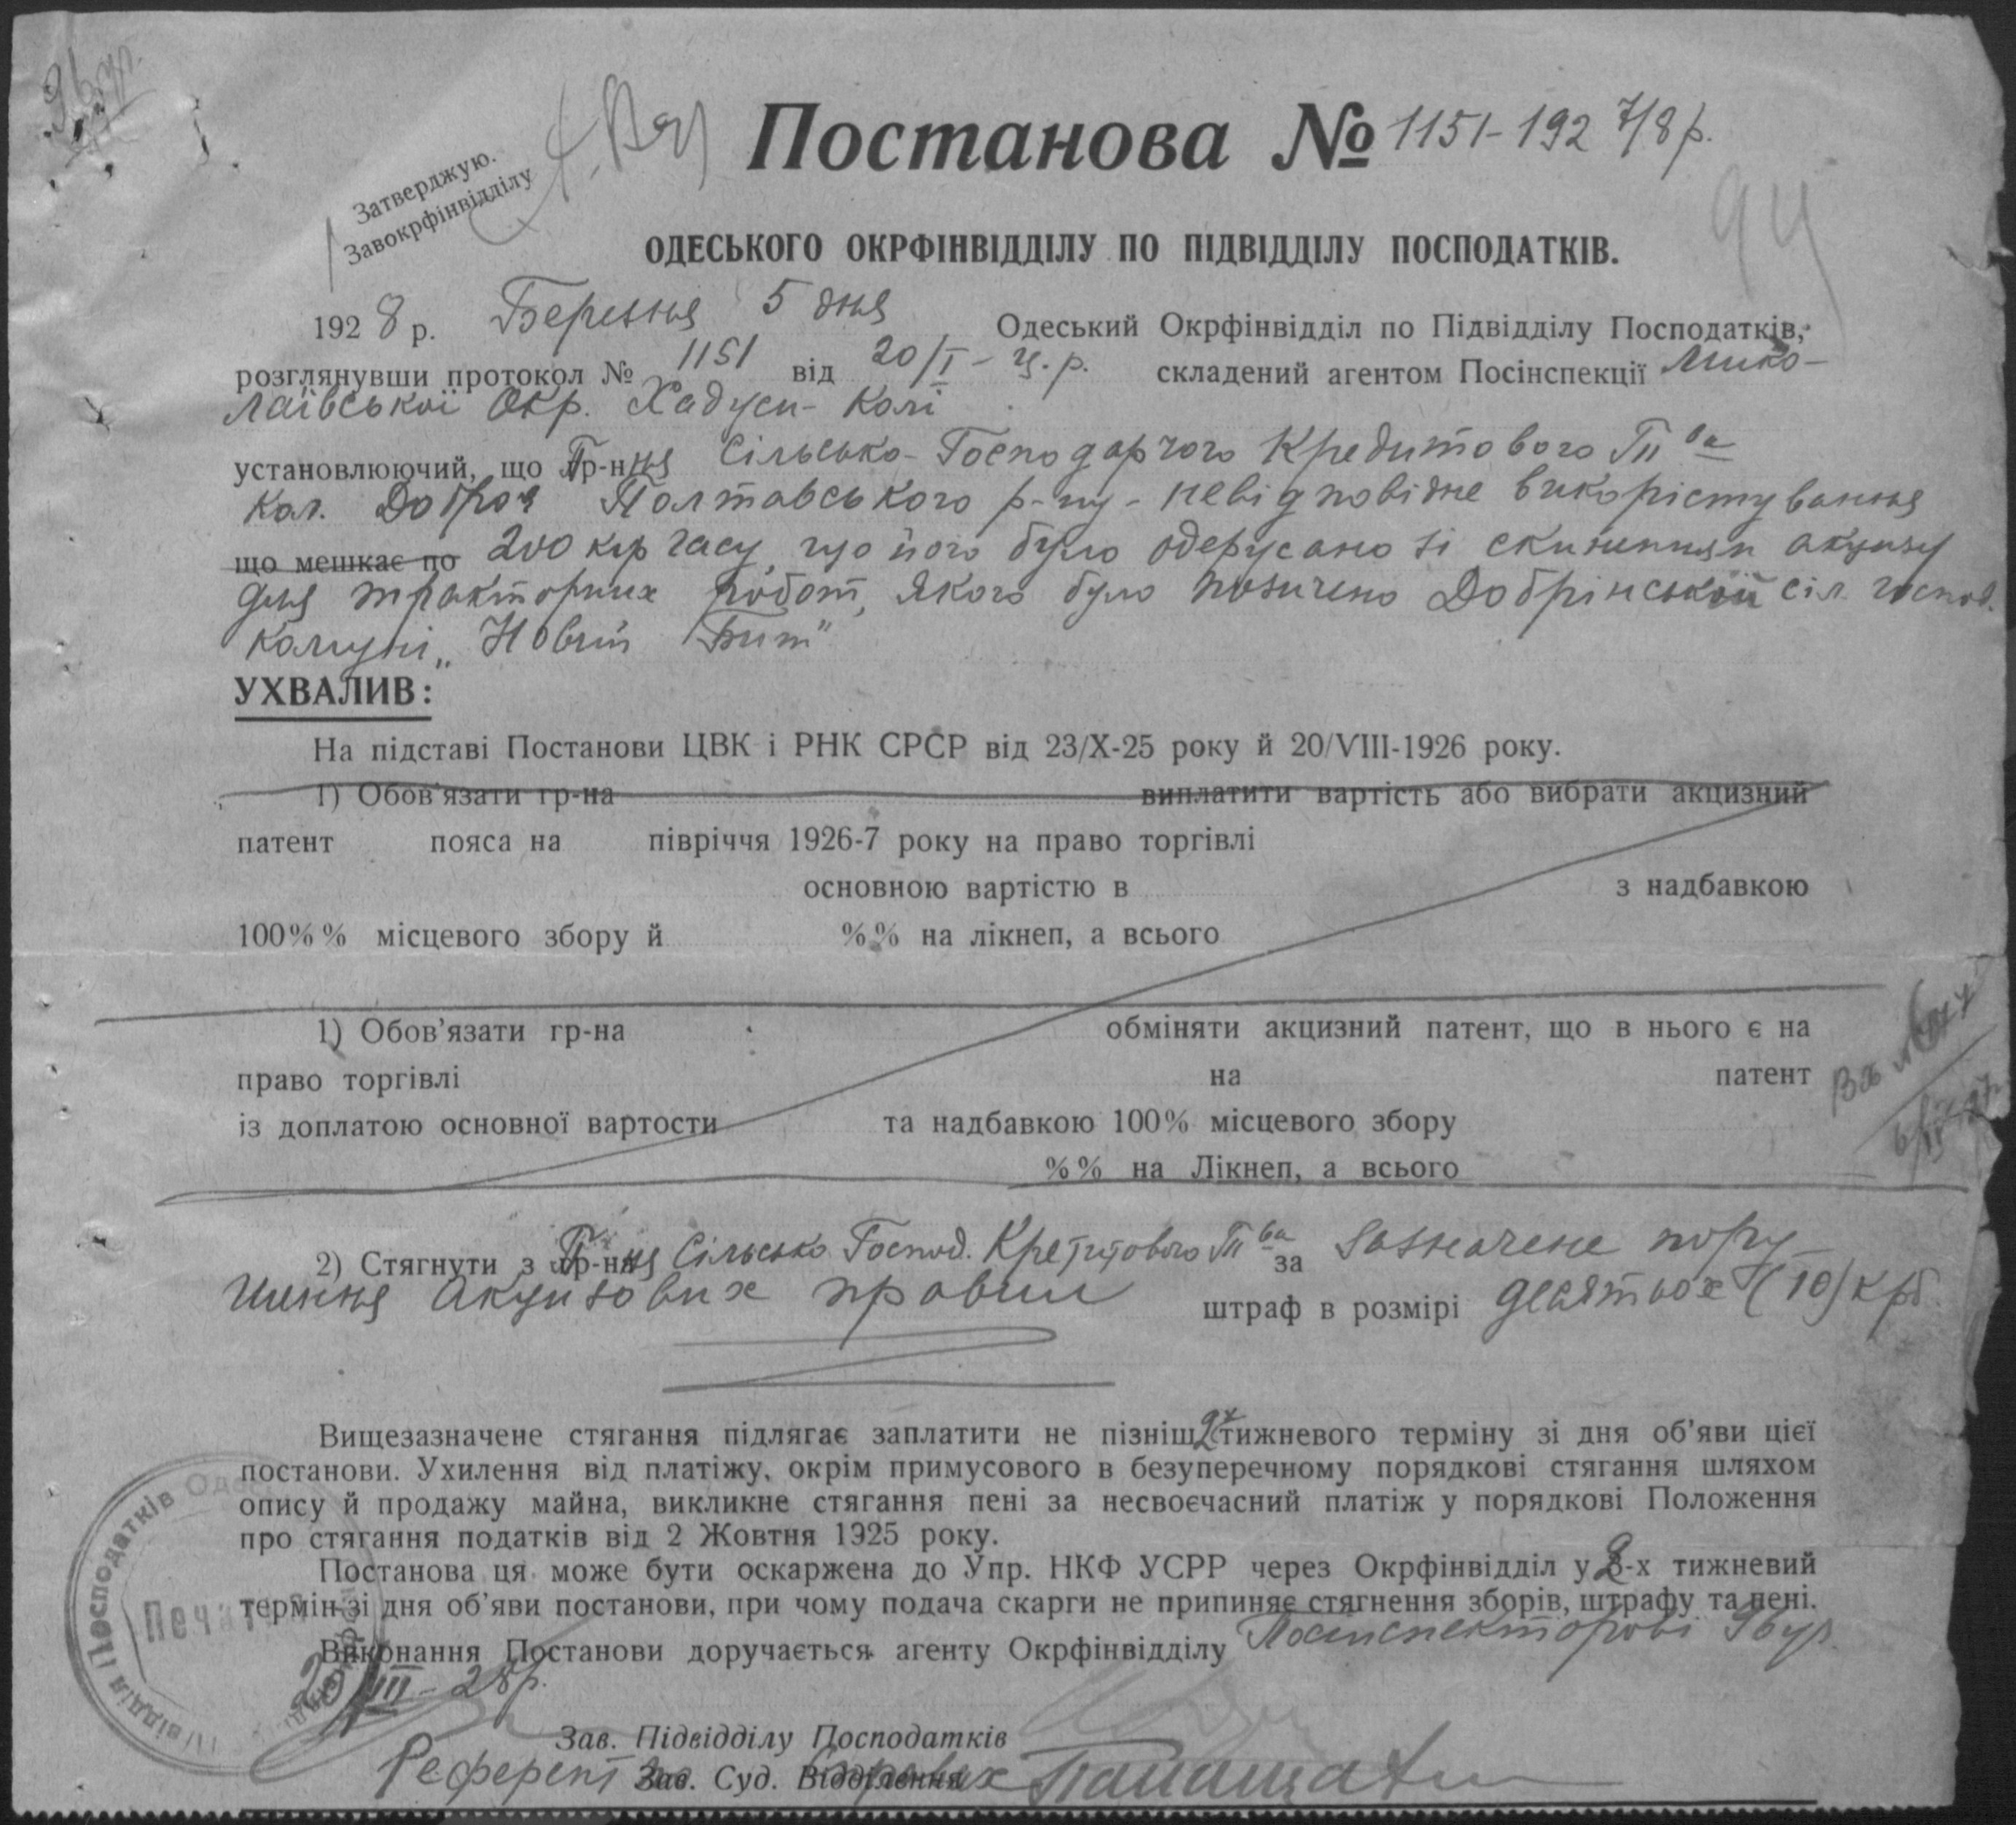 Затверджую.
Завокрфінвідділу
Постанова № 1151-1927/8 р.
94
ОДЕСЬКОГО ОКРФІНВІДДІЛУ ПО ПІДВІДДІЛУ ПОСПОДАТКІВ.
1928 р. Березня 5 дня Одеський Окрфінвідділ по Підвідділу Посподатків,
розглянувши протокол № 1151 від 20/I - ц.р. складений агентом Посінспекції Мико-
лаївської Окр.
установлюючий, що Пр-ння Сільсько-Господарчого Кредитового Т-ва
Кол. Доброя Полтавського р-ну - невідповідне використування
що мешкає по 200 клр гасу, що його було одержано зі скиненням акцизу
для тракторних робот, якого було позичено Добрінській сіл. господ.
комуні „Новий Бит"
УХВАЛИВ:
На підставі Постанови ЦВК і РНК СРСР від 23/X-25 року й 20/VIII-1926 року.
1) Обов'язати гр-на виплатити вартість або вибрати акцизний
патент пояса на півріччя 1926-7 року на право торгівлі
основною вартістю в з надбавкою
100%% місцевого збору й %% на лікнеп, а всього
1) Обов'язати гр-на обміняти акцизний патент, що в нього є на
право торгівлі на патент
із доплатою основної вартости та надбавкою 100% місцевого збору
%% на Лікнеп, а всього
2) Стягнути з Пр-ння Сільсько Господ. Кредитового Т-ва за зазначене пору-
шення акцизових правил штраф в розмірі десятьох (10) крб.
Вищезазначене стягання підлягає заплатити не пізніш 2х тижневого терміну зі дня об'яви цієї
постанови. Ухилення від платіжу, окрім примусового в безуперечному порядкові стягання шляхом
опису й продажу майна, викликне стягання пені за несвоєчасний платіж у порядкові Положення
про стягання податків від 2 Жовтня 1925 року.
Постанова ця може бути оскаржена до Упр. НКФ УСРР через Окрфінвідділ у 2-х тижневий
термін зі дня об'яви постанови, при чому подача скарги не припиняє стягнення зборів, штрафу та пені.
Виконання Постанови доручається агенту Окрфінвідділу Посінспекторові 96
III - 28 р.
Зав. Підвідділу Посподатків
Референт Зав. Суд. Відділення